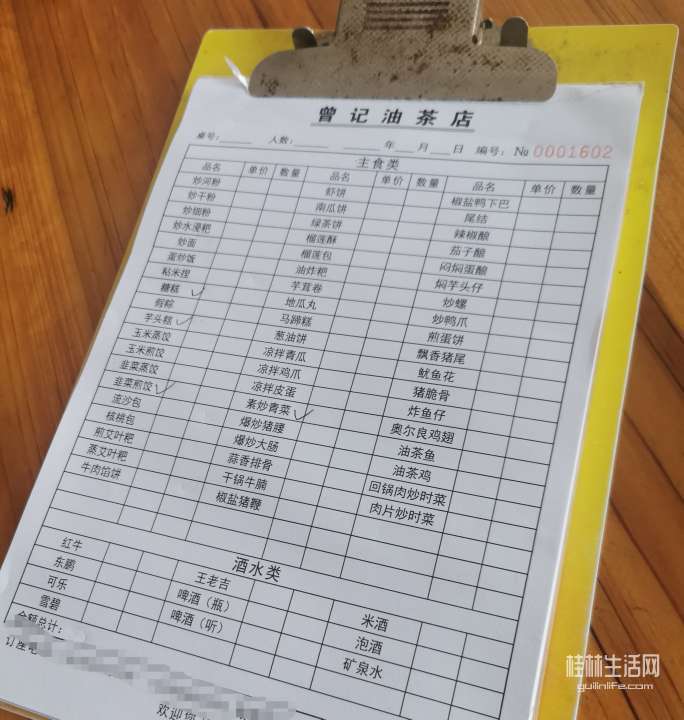 曾记油茶店
桌号: 人数: 年 月 日 编号: № 0001602
主食类
品名 单价 数量 品名 单价 数量 品名 单价 数量
炒河粉 虾饼 椒盐鸭下巴
炒干粉 南瓜饼 尾结
炒细粉 绿茶饼 辣椒酿
炒水浸粑 榴莲酥 茄子酿
炒面 榴莲包 闷焖蛋酿
蛋炒饭 油炸粑 焖芋头仔
粘米捏 芋茸卷 炒螺
糖糕 地瓜丸 炒鸭爪
假粽 马蹄糕 煎蛋饼
芋头糕 葱油饼 飘香猪尾
玉米蒸饺 凉拌青瓜 鱿鱼花
玉米煎饺 凉拌鸡爪 猪脆骨
韭菜蒸饺 凉拌皮蛋 炸鱼仔
韭菜煎饺 素炒青菜 奥尔良鸡翅
流沙包 爆炒猪腰 油茶鱼
核桃包 爆炒大肠 油茶鸡
煎艾叶粑 蒜香排骨 回锅肉炒时菜
蒸艾叶粑 干锅牛腩 肉片炒时菜
牛肉馅饼 椒盐猪鞭
酒水类
红牛 王老吉 米酒
东鹏 啤酒（瓶） 泡酒
可乐 啤酒（听） 矿泉水
雪碧
金额总计:
欢迎您
桂林生活网
guilinlife.com